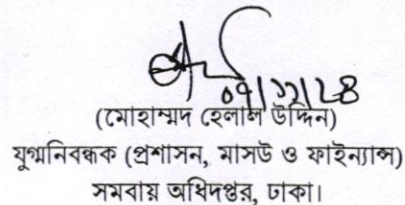 ০৭/১১/২৪
(মোহাম্মদ হেলাল উদ্দিন)
যুগ্মনিবন্ধক (প্রশাসন, মাসউ ও ফাইন্যান্স)
সমবায় অধিদপ্তর, ঢাকা।